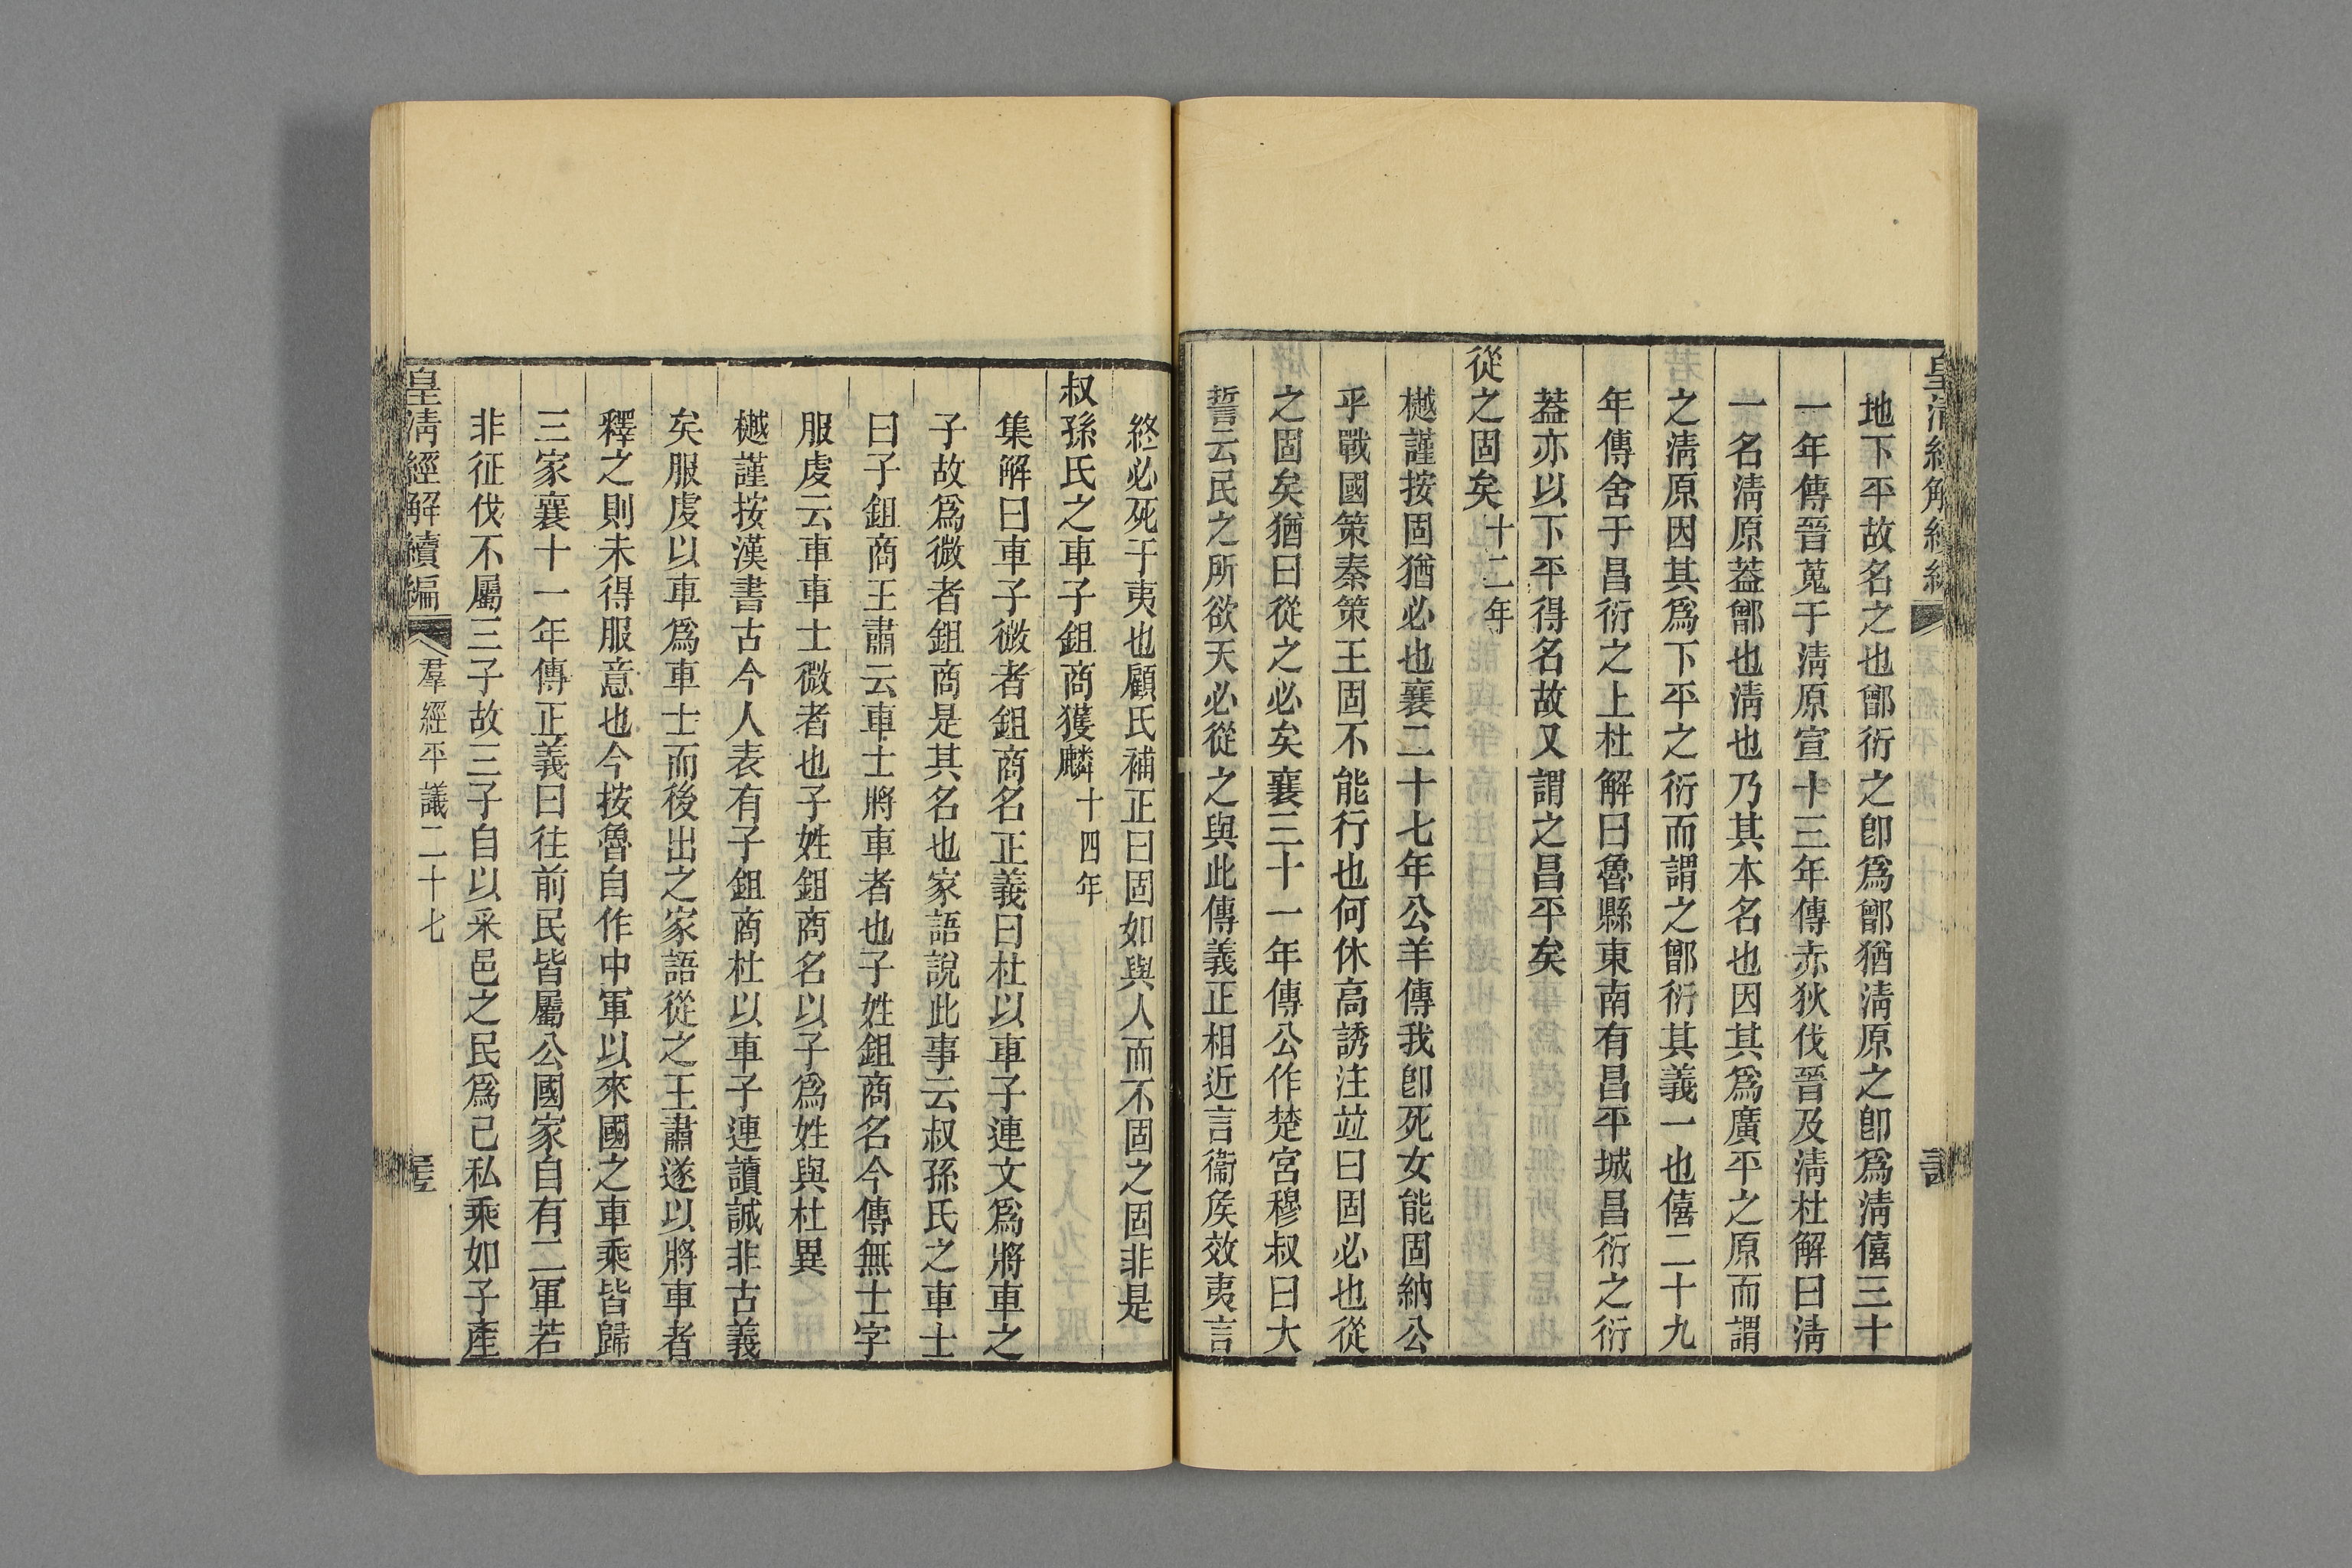 地下平故名之也鄫衍之卽爲鄫猶淸原之卽爲淸僖三十
一年傳晉蒐于淸原宣十三年傳赤狄伐晉及淸杜解曰淸
一名淸原葢鄫也淸也乃其本名也因其爲廣平之原而謂
之淸原因其爲下平之衍而謂之鄫衍其義一也僖二十九
年傳舍于昌衍之上杜解曰魯縣東南有昌平城昌衍之衍
葢亦以下平得名故又謂之昌平矣
從之固矣十二年
樾謹按固猶必也襄二十七年公羊傳我卽死女能固納公
乎戰國策秦策王固不能行也何休高誘注竝曰固必也從
之固矣猶曰從之必矣襄三十一年傳公作楚宮穆叔曰大
誓云民之所欲天必從之與此傳義正相近言衞矦效夷言
終必死于夷也顧氏補正曰固如與人而不固之固非是
叔孫氏之車子鉏商獲麟十四年
集解曰車子微者鉏商名正義曰杜以車子連文爲將車之
子故爲微者鉏商是其名也家語說此事云叔孫氏之車士
曰子鉏商王肅云車士將車者也子姓鉏商名今傳無士字
服虔云車車士微者也子姓鉏商名以子爲姓與杜異
樾謹按漢書古今人表有子鉏商杜以車子連讀誠非古義
矣服虔以車爲車士而後出之家語從之王肅遂以將車者
釋之則未得服意也今按魯自作中軍以來國之車乘皆歸
三家襄十一年傳正義曰往前民皆屬公國家自有二軍若
非征伐不屬三子故三子自以采邑之民爲己私乘如子產
皇淸經解續編 羣經平議二十七